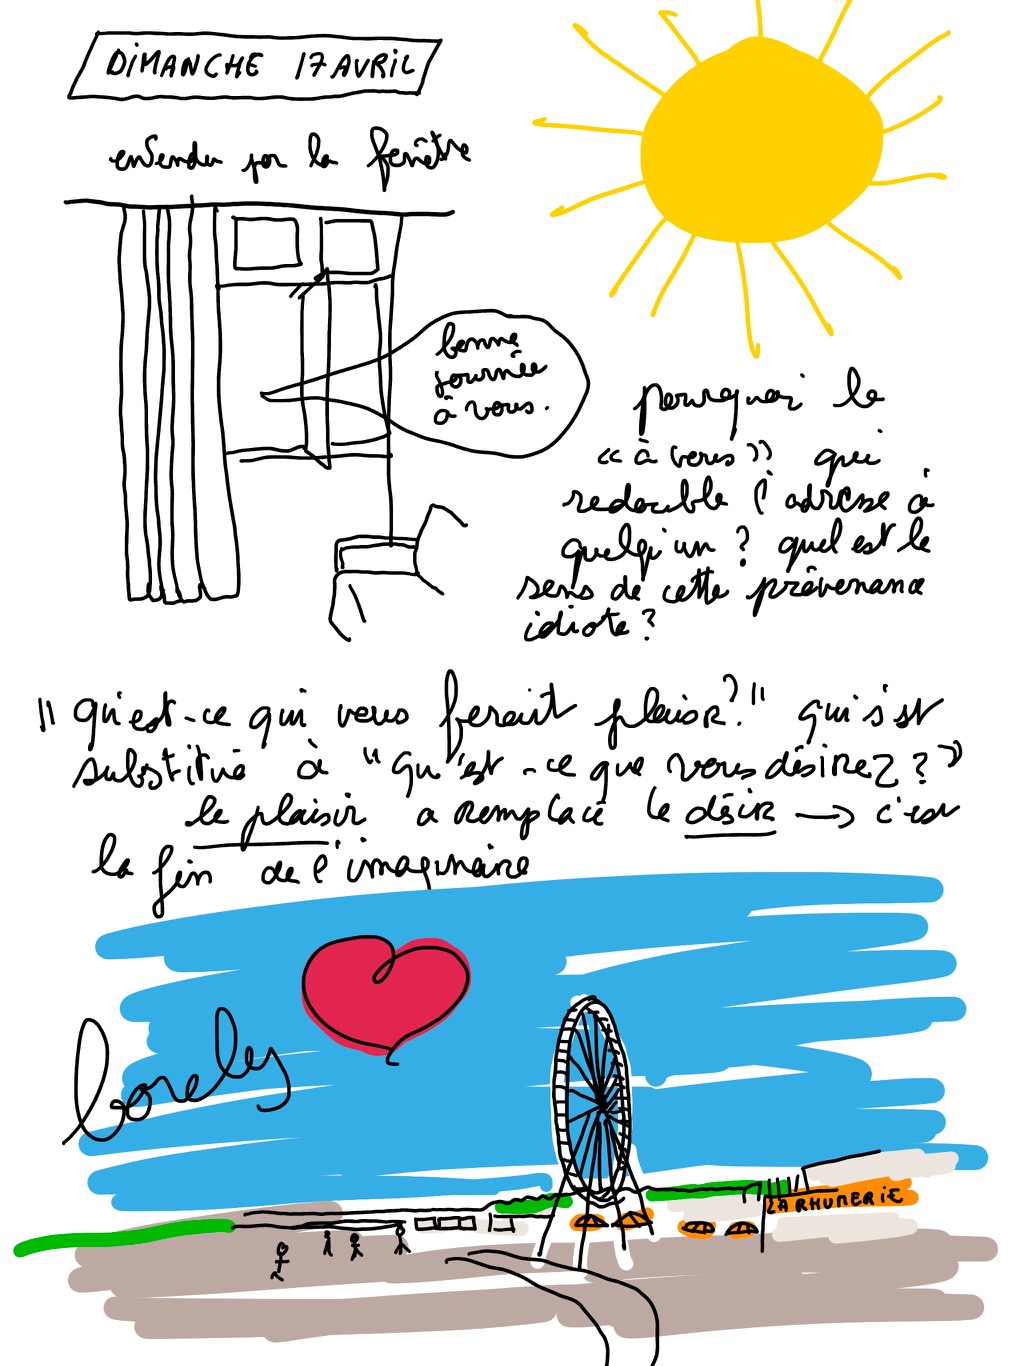 DIMANCHE 17 AVRIL
entendu par la fenêtre
bonne
journée
à vous.
pourquoi le
« à vous » qui
redouble l'adresse à
quelqu'un ? quel est le
sens de cette prévenance
idiote ?
"qu'est-ce qui vous ferait plaisir ?" qui s'est
substitué à "Qu'est-ce que vous désirez ?"
le plaisir a remplacé le désir → c'est
la fin de l'imaginaire
lonely
LA RHUMERIE